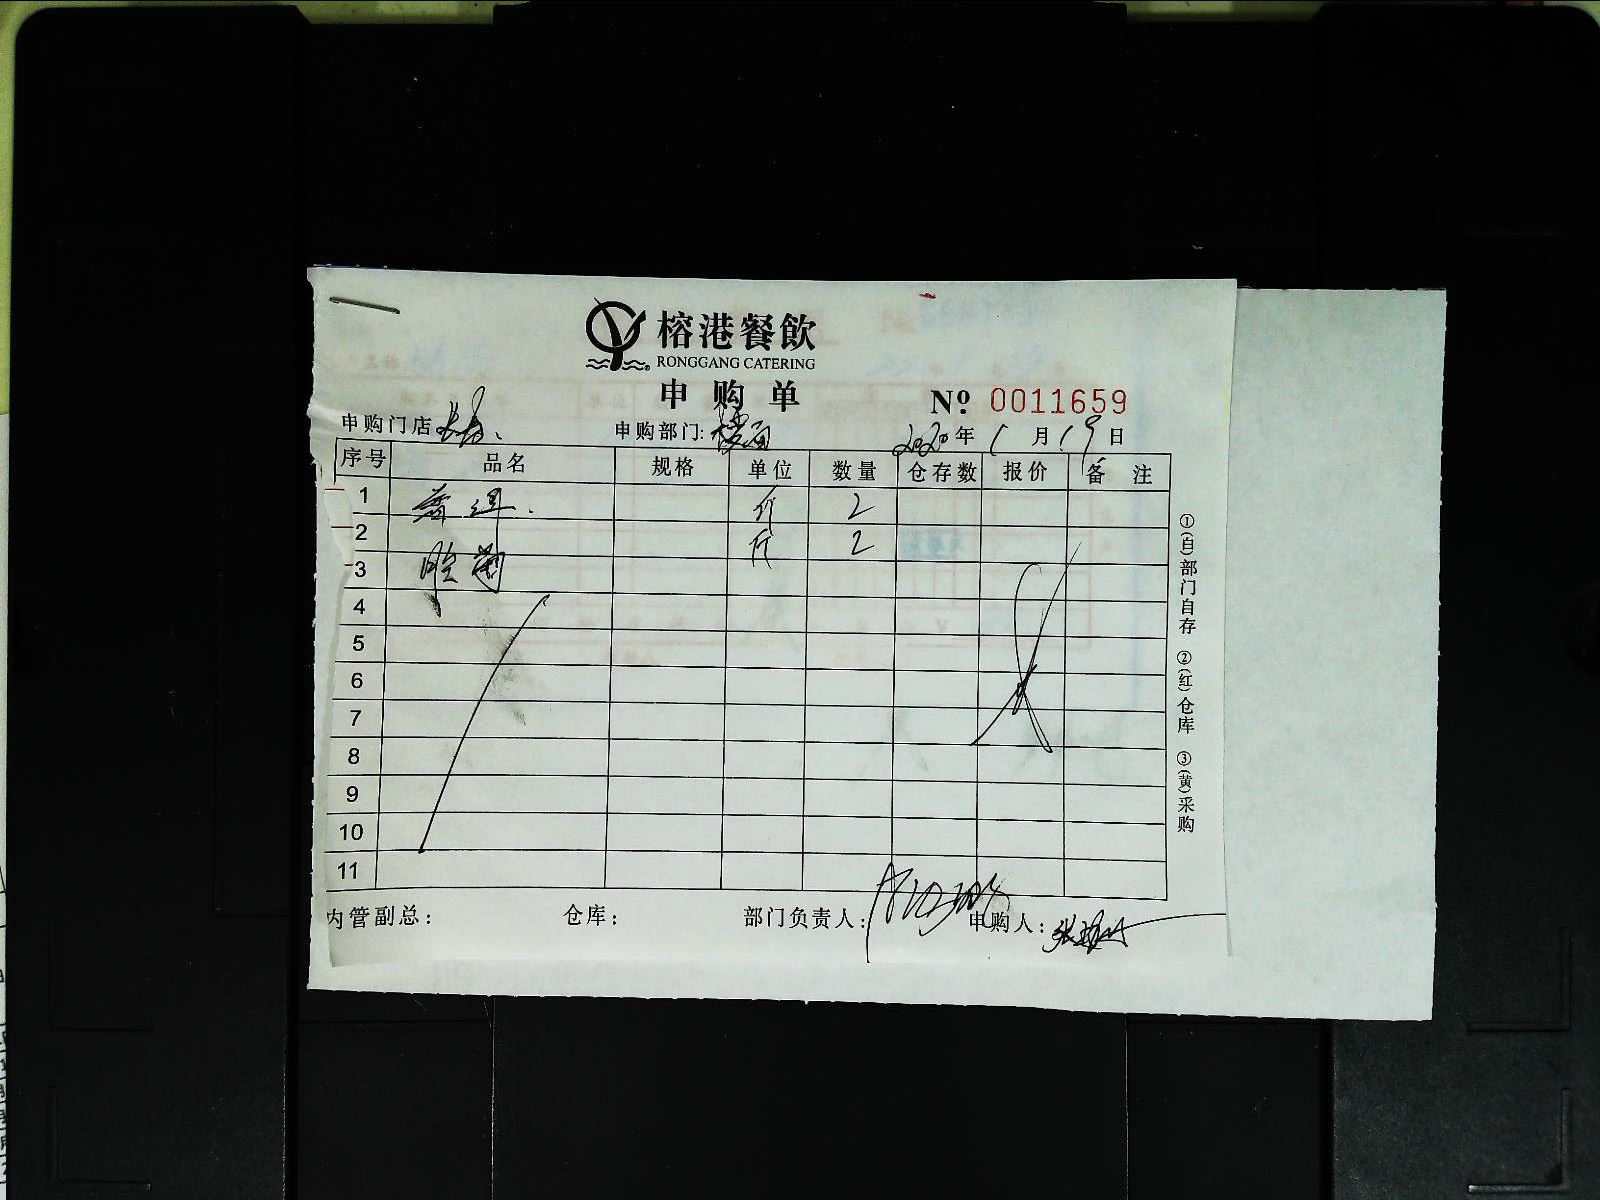 榕港餐飲
RONGGANG CATERING
申购单
№ 0011659
申购门店 申购部门: 楼面 2020年1月19日
序号 品名 规格 单位 数量 仓存数 报价 备注
1 斤 2
2 斤 2
3
4
5
6
7
8
9
10
11
①(白)部门自存 ②(红)仓库 ③(黄)采购
内管副总: 仓库: 部门负责人: 申购人: